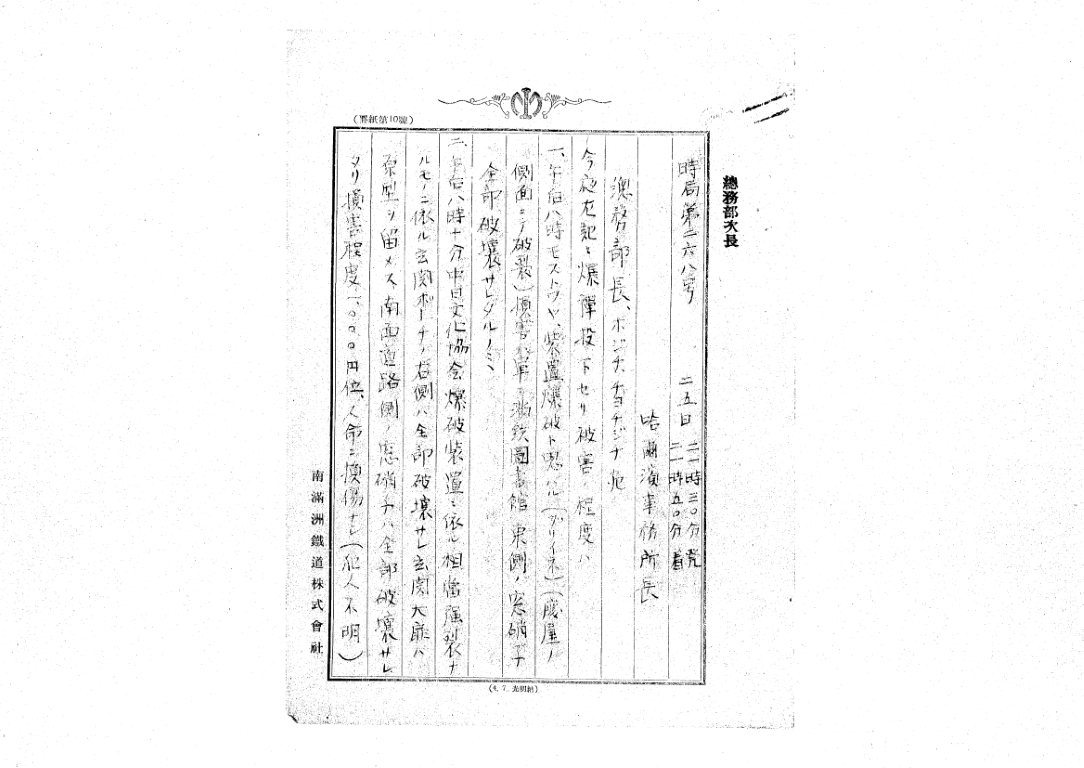 (罫紙第10號)
總務部次長
時局第二六八号
二五日
二一時三〇分発
二一時五〇分着
哈爾濱事務所長
總務部長、ホンジチ、チヨチジチ宛
今夜左記ニ爆弾投下セリ被害ノ程度ハ
一、午后八時モストワヤ、装置爆破ト思ハル(ダリイネ)(廢屋ノ
側面ニテ破裂)損害ハ単ニ満鉄圖書館東側ノ窓硝子
全部破壊サレタルノミ、
二、午后八時十分中日文化協会爆破装置ニ依ル相當强裂ナ
ルモノニ依ル玄関ポーチノ右側ハ全部破壊サレ玄関大扉ハ
原型ヲ留メス南面道路側ノ窓硝子ハ全部破壊サレ
タリ損害程度一、〇〇〇円位、人命ニ損傷ナシ(犯人不明)
南滿洲鐵道株式會社
(4. 7. 光明納)